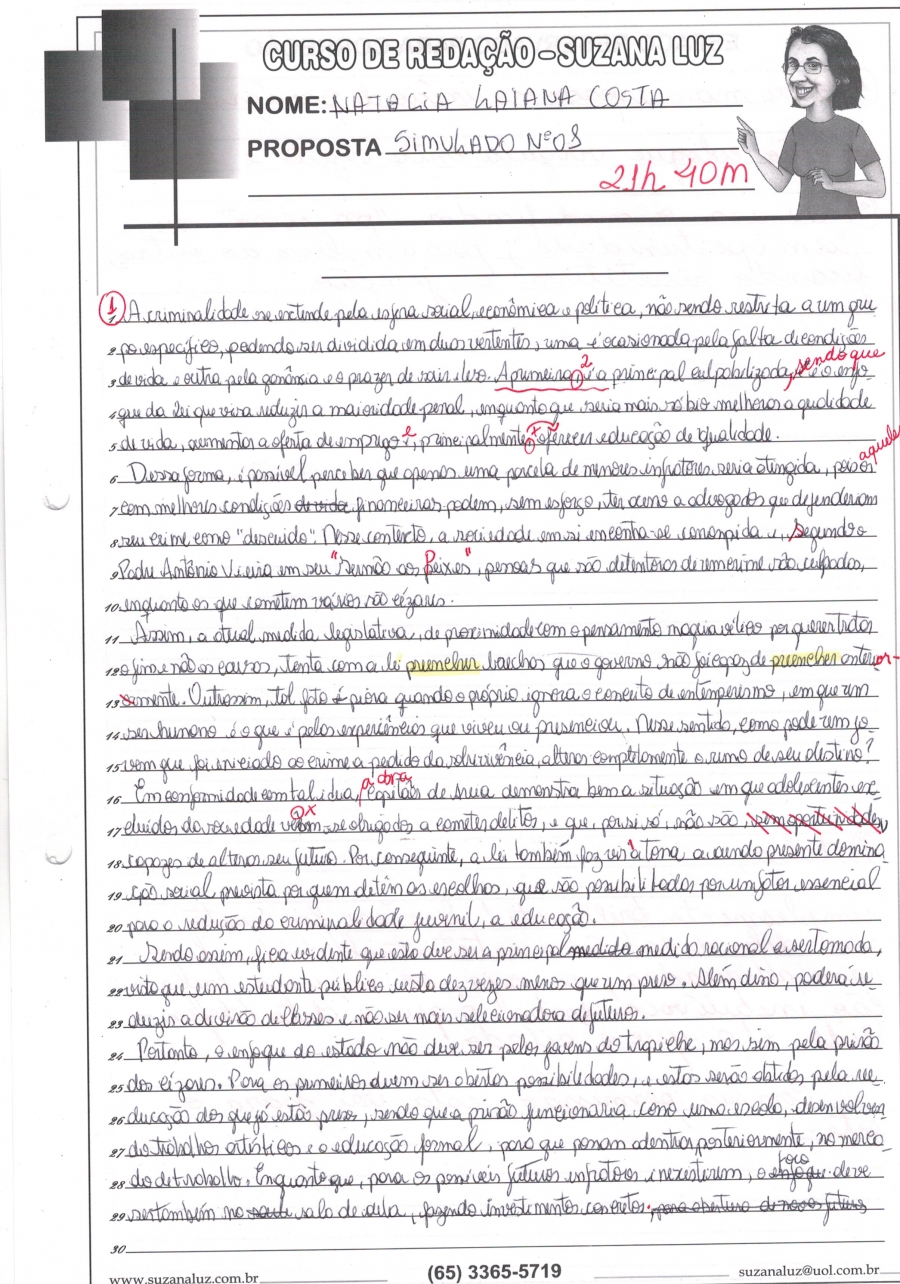 CURSO DE REDAÇÃO - SUZANA LUZ
NOME: NATALIA LAIANA COSTA
PROPOSTA SIMULADO Nº 08
21h 40m
1 A criminalidade se extende pela esfera social, econômica e política, não sendo restrita a um gru
2 po específico, podendo ser dividida em duas vertentes, uma é ocasionada pela falta de condições
sendo que
3 de vida e outra pela ganância e o prazer de sair ileso. A primeira é a principal culpabilizada, e é o enfo-
4 que da lei que visa reduzir a maioridade penal, enquanto que seria mais sóbio melhorar a qualidade
5 de vida, aumentar a oferta de emprego e, principalmente oferecer educação de igualdade.
aqueles
6 Dessa forma, é possível perceber que apenas uma parcela de menores infratores seria atingida, pois os
7 com melhores condições de vida financeiras podem, sem esforço, ter acesso a advogados que defenderiam
8 seu crime como "descuido". Nesse contexto, a sociedade em si encontra-se corrompida e, segundo o
9 Padre Antônio Vieira em seu "Sermão aos Peixes", pessoas que são detentoras de um crime são culpadas,
10 enquanto os que cometem vários são cézares.
11 Assim, a atual medida legislativa, de proximidade com o pensamento maquiavélico por querer tratar
12 o fim e não as causas, tenta com a lei preencher brechas que o governo não foi capaz de preencher anterior-
13 mente. Outrossim, tal fato é piora quando o próprio ignora o conceito de intemperismo, em que um
14 ser humano é o que é pelas experiências que viveu ou presenciou. Nesse sentido, como pode um jo-
15 vem que foi iniciado ao crime a pedido da sobrevivência, alterar completamente o rumo de seu destino?
a obra
16 Em conformidade com tal ideia, Capitães de Areia demonstra bem a situação em que adolescentes ex-
17 cluídos da sociedade veem-se obrigados a cometer delitos, e que, por si só, não são, sem oportunidades,
18 capazes de alterar seu futuro. Por conseguinte, a lei também faz vir à tona a sendo presente domina
19 ção social prevista por quem detém as escolhas, que são possibilitadas por um fator essencial
20 para a redução da criminalidade juvenil, a educação.
21 Sendo assim, fica evidente que esta deve ser a principal medida medida racional a ser tomada,
22 visto que um estudante público custa dez vezes menos que um preso. Além disso, poderá re-
23 duzir a divisão de classes e não ser mais selecionadora de futuros.
24 Portanto, o enfoque do estado não deve ser pelos jovens do trapiche, mas sim pela prisão
25 dos cézares. Para os primeiros devem ser abertas possibilidades, e estas serão obtidas pela ree-
26 ducação dos que já estão presos, sendo que a prisão funcionaria como uma escola, desenvolven
27 do trabalhos artísticos e a educação formal, para que possam adentrar posteriormente, no merca
foco
28 do de trabalho. Enquanto que, para os possíveis futuros infratores inexistirem, o enfoque deve
29 ser também na sala de aula, fazendo investimentos concretos. para abertura de novos futuros
30
www.suzanaluz.com.br
(65) 3365-5719
suzanaluz@uol.com.br